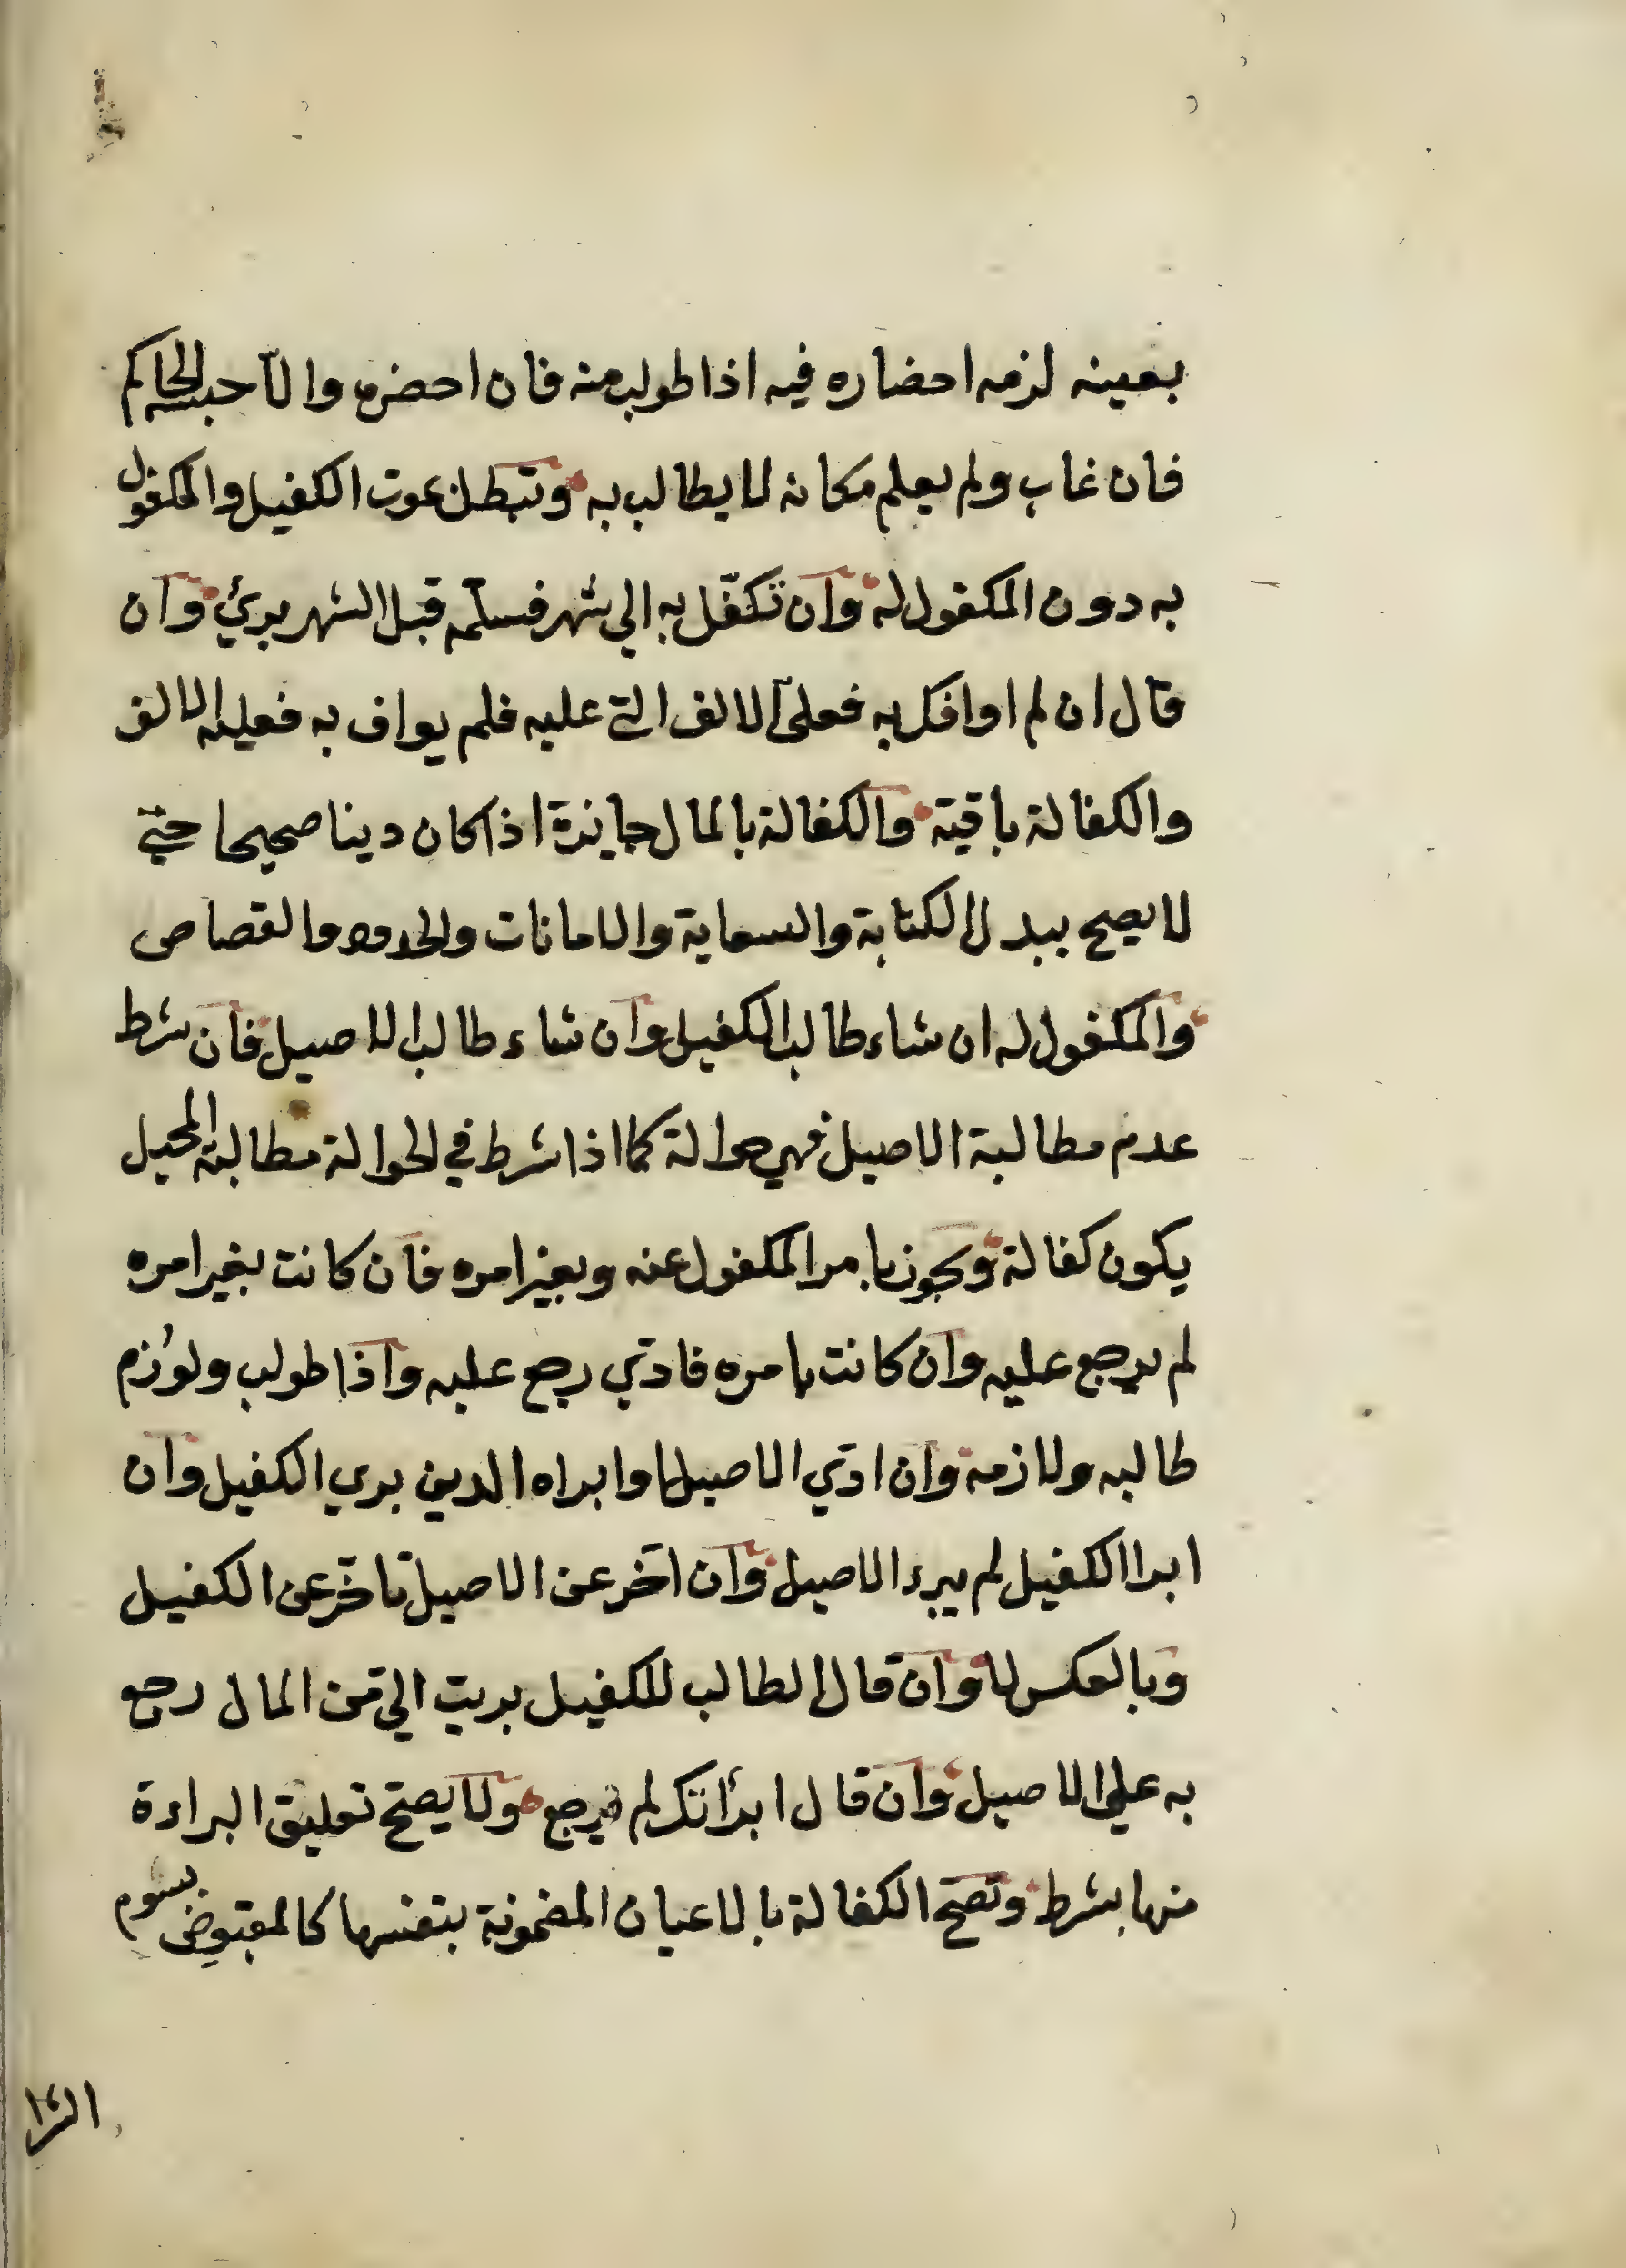 بعينه لزمه احضاره فيه اذا طولب منه فان احضره والّا حبسه الحاكم
فان غاب ولم يعلم مكانه لا يطالب به وتبطل بموت الكفيل والمكفول
به دون المكفول له وان تكفّل به الي شهر فسلّمه قبل الشهر بريئ وان
قال ان لم اوافك به فعلىّ الالف التي عليه فلم يواف به فعليه الالف
والكفالة باقية والكفالة بالمال جايزة اذا كان دينا صحيحا حتي
لا يصح ببدل الكتابة والسعاية والامانات والحدود والقصاص
والمكفول له ان شاء طالب الكفيل وان شاء طالب الاصيل فان شرط
عدم مطالبة الاصيل فهي حوالة كما اذا شرط في الحوالة مطالبة المحيل
يكون كفالة وتجوز بامر المكفول عنه وبغير امره فان كانت بغير امره
لم يرجع عليه وان كانت بامره فادّي رجع عليه واذا طولب ولوُزم
طالبه ولازمه وان ادّي الاصيل او ابراه الدين بري الكفيل وان
ابرا الكفيل لم يبرء الاصيل وان اخّر عن الاصيل تاخّر عن الكفيل
وبالعكس لا وان قال الطالب للكفيل بريت اليّ من المال رجع
به علي الاصيل وان قال ابرأتك لم يرجع ولا يصحّ تعليق البراءة
منها بشرط وتصحّ الكفالة بالاعيان المضمونة بنفسها كالمقبوض بسوم
الشرا